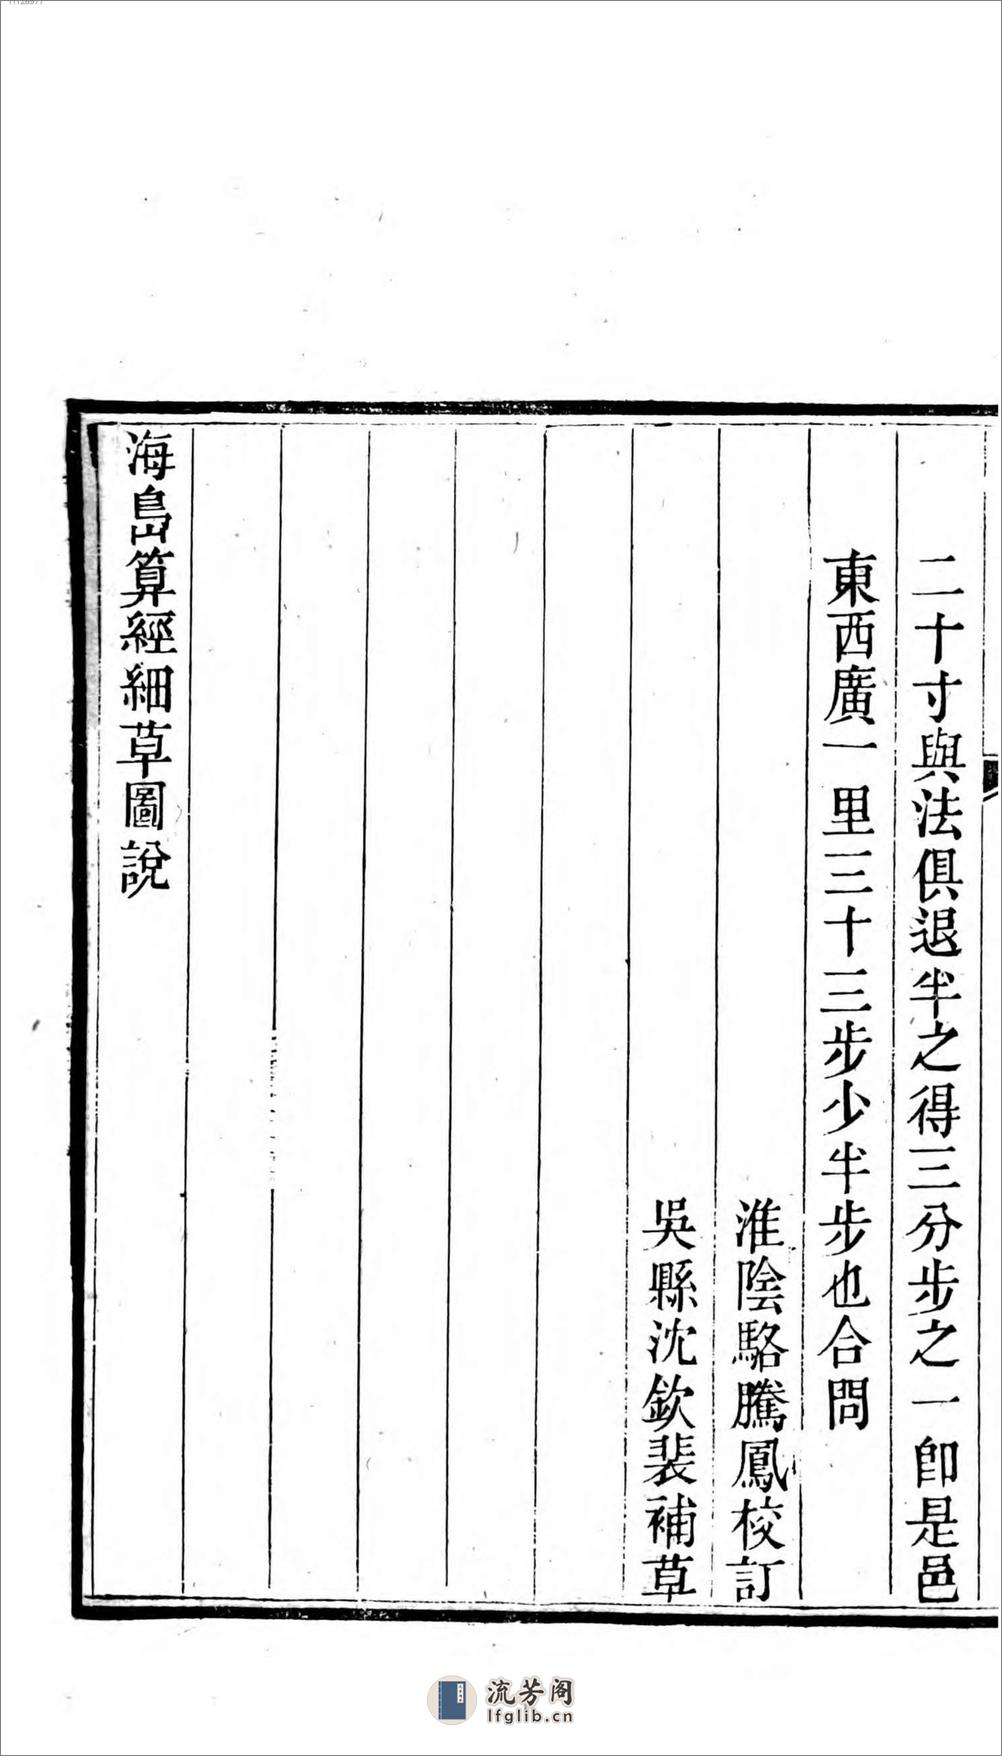 11128977
二十寸與法俱退半之得三分步之一卽是邑
東西廣一里三十三步少半步也合問
淮陰駱騰鳳校訂
吳縣沈欽裴補草
海島算經細草圖說
流芳阁
lfglib.cn